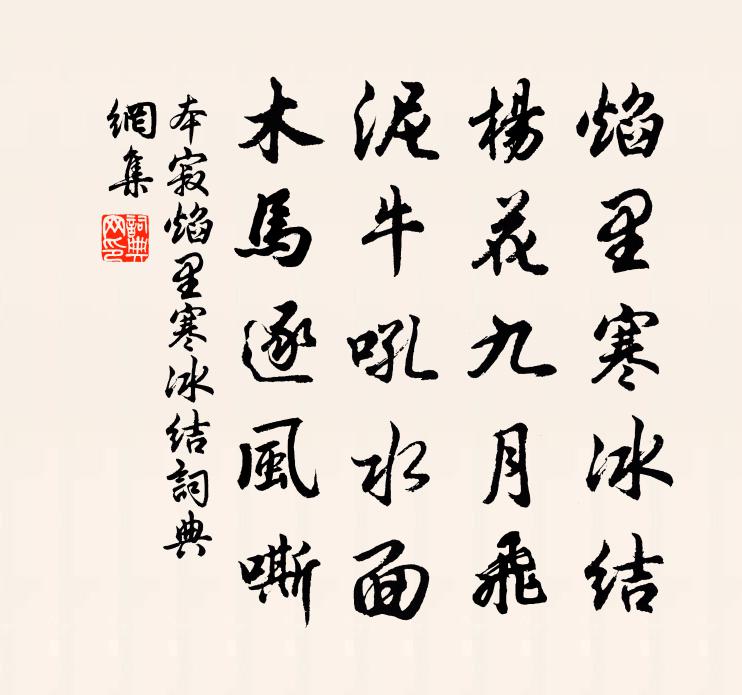 焰里寒冰結
楊花九月飛
泥牛吼水面
木馬逐風嘶
本寂焰里寒冰結詞典
網集
詞典
网印